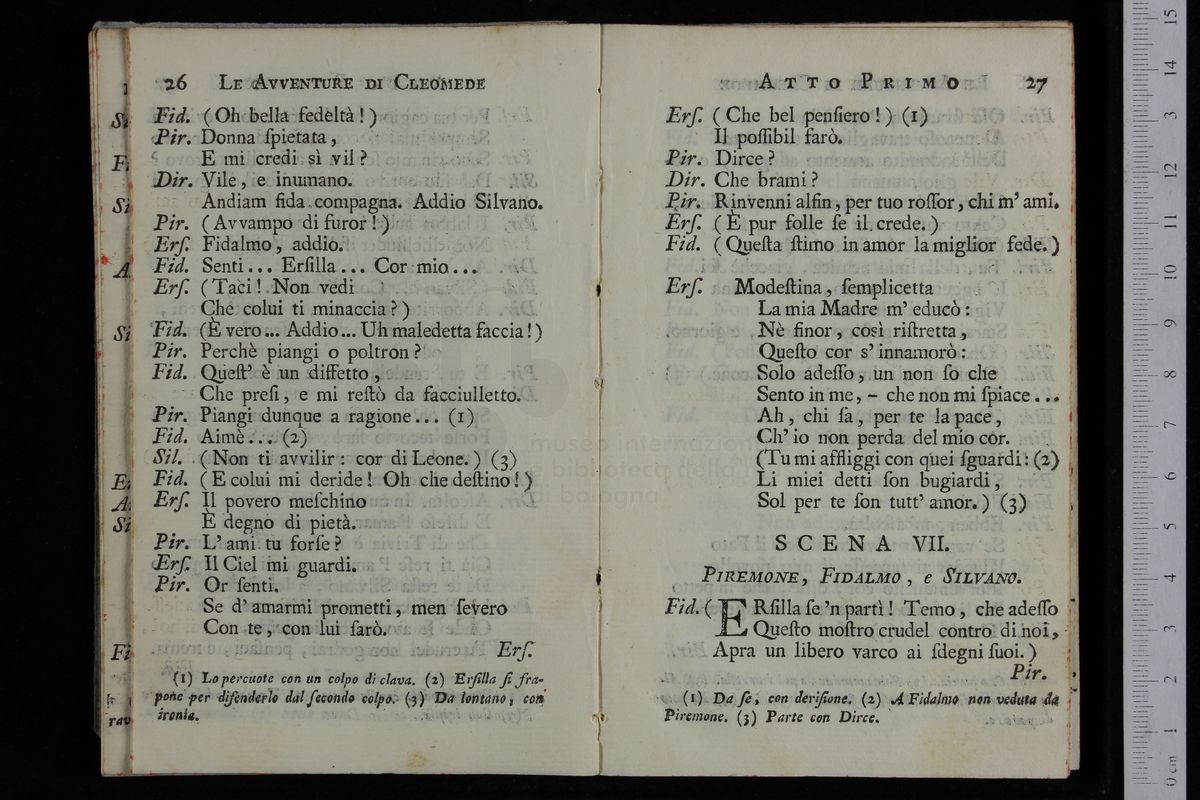 26 LE AVVENTURE DI CLEOMEDE
Fid. (Oh bella fedeltà!)
Pir. Donna ſpietata,
E mi credi sì vil?
Dir. Vile, e inumano.
Andiam fida compagna. Addio Silvano.
Pir. (Avvampo di furor!)
Erſ. Fidalmo, addio.
Fid. Senti... Erſilla... Cor mio...
Erſ. (Taci! Non vedi
Che colui ti minaccia?)
Fid. (È vero... Addio... Uh maledetta faccia!)
Pir. Perchè piangi o poltron?
Fid. Queſt' è un diffetto,
Che preſi, e mi reſtò da facciulletto.
Pir. Piangi dunque a ragione... (1)
Fid. Aimè... (2)
Sil. (Non ti avvilir: cor di Leone.) (3)
Fid. (E colui mi deride! Oh che deſtino!)
Erſ. Il povero meſchino
È degno di pietà.
Pir. L' ami tu forſe?
Erſ. Il Ciel mi guardi.
Pir. Or ſenti.
Se d' amarmi prometti, men ſevero
Con te, con lui ſarò.
Erſ.
(1) Lo percuote con un colpo di clava. (2) Erſilla ſi fra-
pone per difenderlo dal ſecondo colpo. (3) Da lontano, con
ironia.
ATTO PRIMO 27
Erſ. (Che bel penſiero!) (1)
Il poſſibil farò.
Pir. Dirce?
Dir. Che brami?
Pir. Rinvenni alfin, per tuo roſſor, chi m' ami.
Erſ. (È pur folle ſe il crede.)
Fid. (Queſta ſtimo in amor la miglior fede.)
Erſ. Modeſtina, ſemplicetta
La mia Madre m' educò:
Nè finor, così riſtretta,
Queſto cor s' innamorò:
Solo adeſſo, un non ſo che
Sento in me, - che non mi ſpiace...
Ah, chi ſa, per te la pace,
Ch' io non perda del mio cor.
(Tu mi affliggi con quei ſguardi: (2)
Li miei detti ſon bugiardi,
Sol per te ſon tutt' amor.) (3)
SCENA VII.
PIREMONE, FIDALMO, e SILVANO.
Fid. (ERſilla ſe 'n partì! Temo, che adeſſo
Queſto moſtro crudel contro di noi,
Apra un libero varco ai ſdegni ſuoi.)
Pir.
(1) Da ſe, con deriſione. (2) A Fidalmo non veduta da
Piremone. (3) Parte con Dirce.